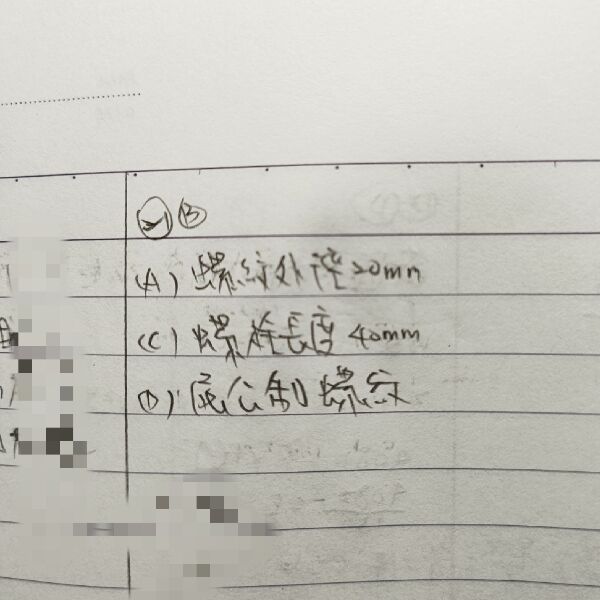 Ⓑ
(A) 螺紋外徑20mm
(C) 螺栓長度 40mm
(D) 底公制螺紋